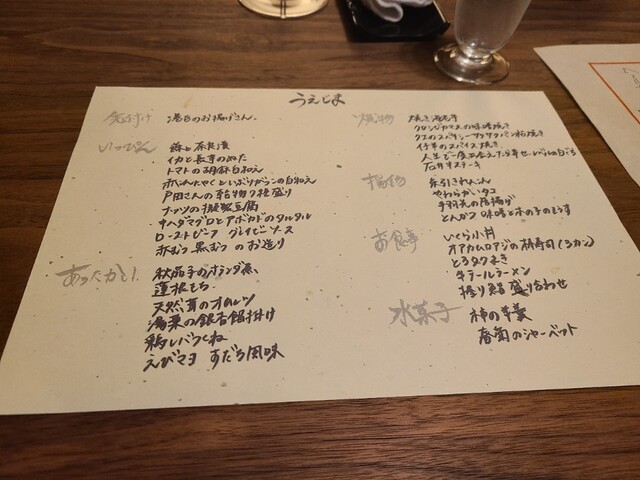 うえじま
先付け 港百のお揚げさん
いっぴん 豚と奈良漬
イカと長芋のぬた
トマトの胡麻白和え
赤こんにゃくといぶりがっこの白和え
戸田さんの七種盛り
ナッツの擬製豆腐
キハダマグロとアボカドのタルタル
ローストビーフ グレイビーソース
赤むつ 黒むつ のお造り
あったかい 秋茄子のオランダ煮
蓮根もち
天然茸のオムレツ
湯葉の銀杏餡掛け
鶏レバつくね
えびマヨ すだち風味
焼物 焼き海老芋
クロシビカマスの味噌焼き
クエのスパイシーサクサクパン粉焼き
仔羊のスパイス焼き
石井牛ステーキ
揚物 糸引きれんこん
やわらかいタコ
手羽先の唐揚げ
とんかつ 味噌と木の子のそうす
お食事 いくら小丼
オアカムロアジの棒寿司(3カン)
とろタクまき
牛テールラーメン
握り鮨 盛り合わせ
水菓子 柿の羊羹
春菊のシャーベット